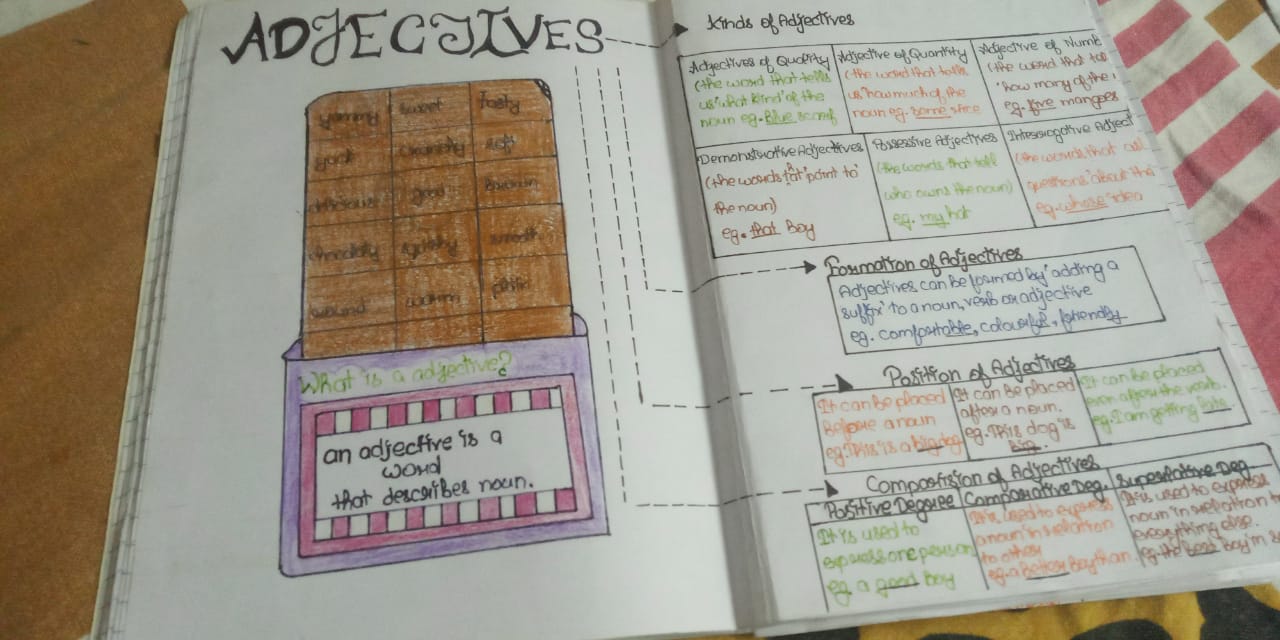 ADJECTIVES
yummy sweet tasty
dark crunchy soft
delicious good brown
chocolaty smooth
round warm
What is a adjective?
an adjective is a
word
that describes noun.
Kinds of Adjectives
Adjectives of Quality
(the word that tells
us 'what kind' of the
noun eg. Blue scarf
Adjective of Quantity
(the word that tells
us 'how much of the
noun eg. some rice
Adjective of Numb
(the word that tell
'how many of the
eg. five mangoes
Demonstrative Adjectives
(the words that 'point to'
the noun)
eg. that Boy
Possessive Adjectives
(the words that tell
who owns the noun)
eg. my hat
Interrogative Adject
(the words that
questions about the
eg. whose idea
Formation of Adjectives
Adjectives can be formed by 'adding a
suffix' to a noun, verb or adjective
eg. comfortable, colourful, friendly
Position of Adjectives
It can be placed
Before a noun
eg. This is a big dog
It can be placed
after a noun.
eg. This dog is
big.
It can be placed
even after the verb.
eg. I am getting late.
Comparision of Adjectives
Positive Degree
It is used to
express one person
eg. a good boy
Comparative Deg.
It is used to express
a noun in relation
to other
eg. a Better Boy than
Superlative Deg.
It is used to express
noun in relation t
everything else.
eg. the best boy in